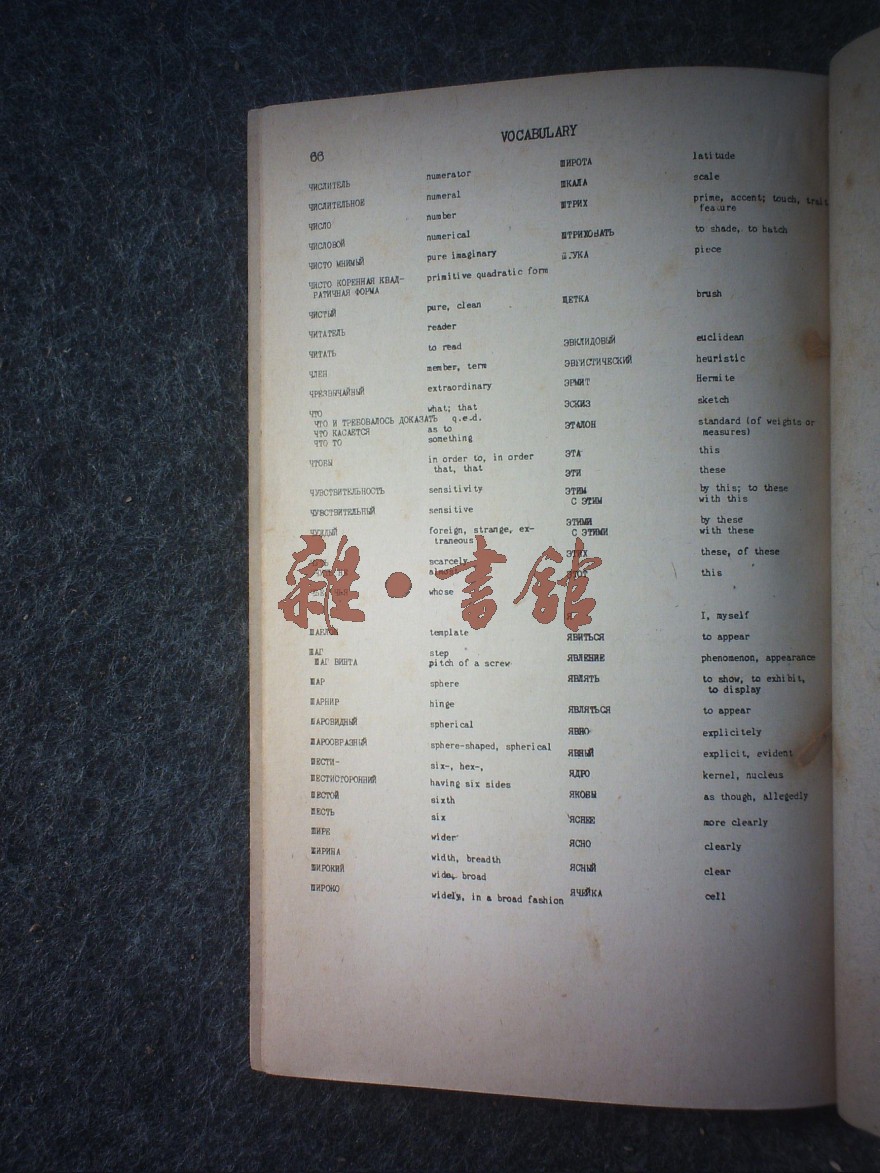 66
VOCABULARY
ЧИСЛИТЕЛЬ numerator
ЧИСЛИТЕЛЬНОЕ numeral
ЧИСЛО number
ЧИСЛОВОЙ numerical
ЧИСТО МНИМЫЙ pure imaginary
ЧИСТО КОРЕННАЯ КВАД- primitive quadratic form
РАТИЧНАЯ ФОРМА
ЧИСТЫЙ pure, clean
ЧИТАТЕЛЬ reader
ЧИТАТЬ to read
ЧЛЕН member, term
ЧРЕЗВЫЧАЙНЫЙ extraordinary
ЧТО what; that
ЧТО И ТРЕБОВАЛОСЬ ДОКАЗАТЬ q.e.d.
ЧТО КАСАЕТСЯ as to
ЧТО ТО something
ЧТОБЫ in order to, in order
that, that
ЧУВСТВИТЕЛЬНОСТЬ sensitivity
ЧУВСТВИТЕЛЬНЫЙ sensitive
ЧУЖДЫЙ foreign, strange, ex-
traneous
scarcely
almost
whose
ШАБЛОН template
ШАГ step
ШАГ ВИНТА pitch of a screw
ШАР sphere
ШАРНИР hinge
ШАРОВИДНЫЙ spherical
ШАРООБРАЗНЫЙ sphere-shaped, spherical
ШЕСТИ- six-, hex-,
ШЕСТИСТОРОННИЙ having six sides
ШЕСТОЙ sixth
ШЕСТЬ six
ШИРЕ wider
ШИРИНА width, breadth
ШИРОКИЙ wide, broad
ШИРОКО widely, in a broad fashion
ШИРОТА latitude
ШКАЛА scale
ШТРИХ prime, accent; touch, trait
feature
ШТРИХОВАТЬ to shade, to hatch
ШТУКА piece
ЩЕТКА brush
ЭВКЛИДОВЫЙ euclidean
ЭВРИСТИЧЕСКИЙ heuristic
ЭРМИТ Hermite
ЭСКИЗ sketch
ЭТАЛОН standard (of weights or
measures)
ЭТА this
ЭТИ these
ЭТИМ by this; to these
С ЭТИМ with this
ЭТИМИ by these
С ЭТИМИ with these
ЭТИХ these, of these
ЭТОТ this
Я I, myself
ЯВИТЬСЯ to appear
ЯВЛЕНИЕ phenomenon, appearance
ЯВЛЯТЬ to show, to exhibit,
to display
ЯВЛЯТЬСЯ to appear
ЯВНО explicitely
ЯВНЫЙ explicit, evident
ЯДРО kernel, nucleus
ЯКОБЫ as though, allegedly
ЯСНЕЕ more clearly
ЯСНО clearly
ЯСНЫЙ clear
ЯЧЕЙКА cell
雜·書館